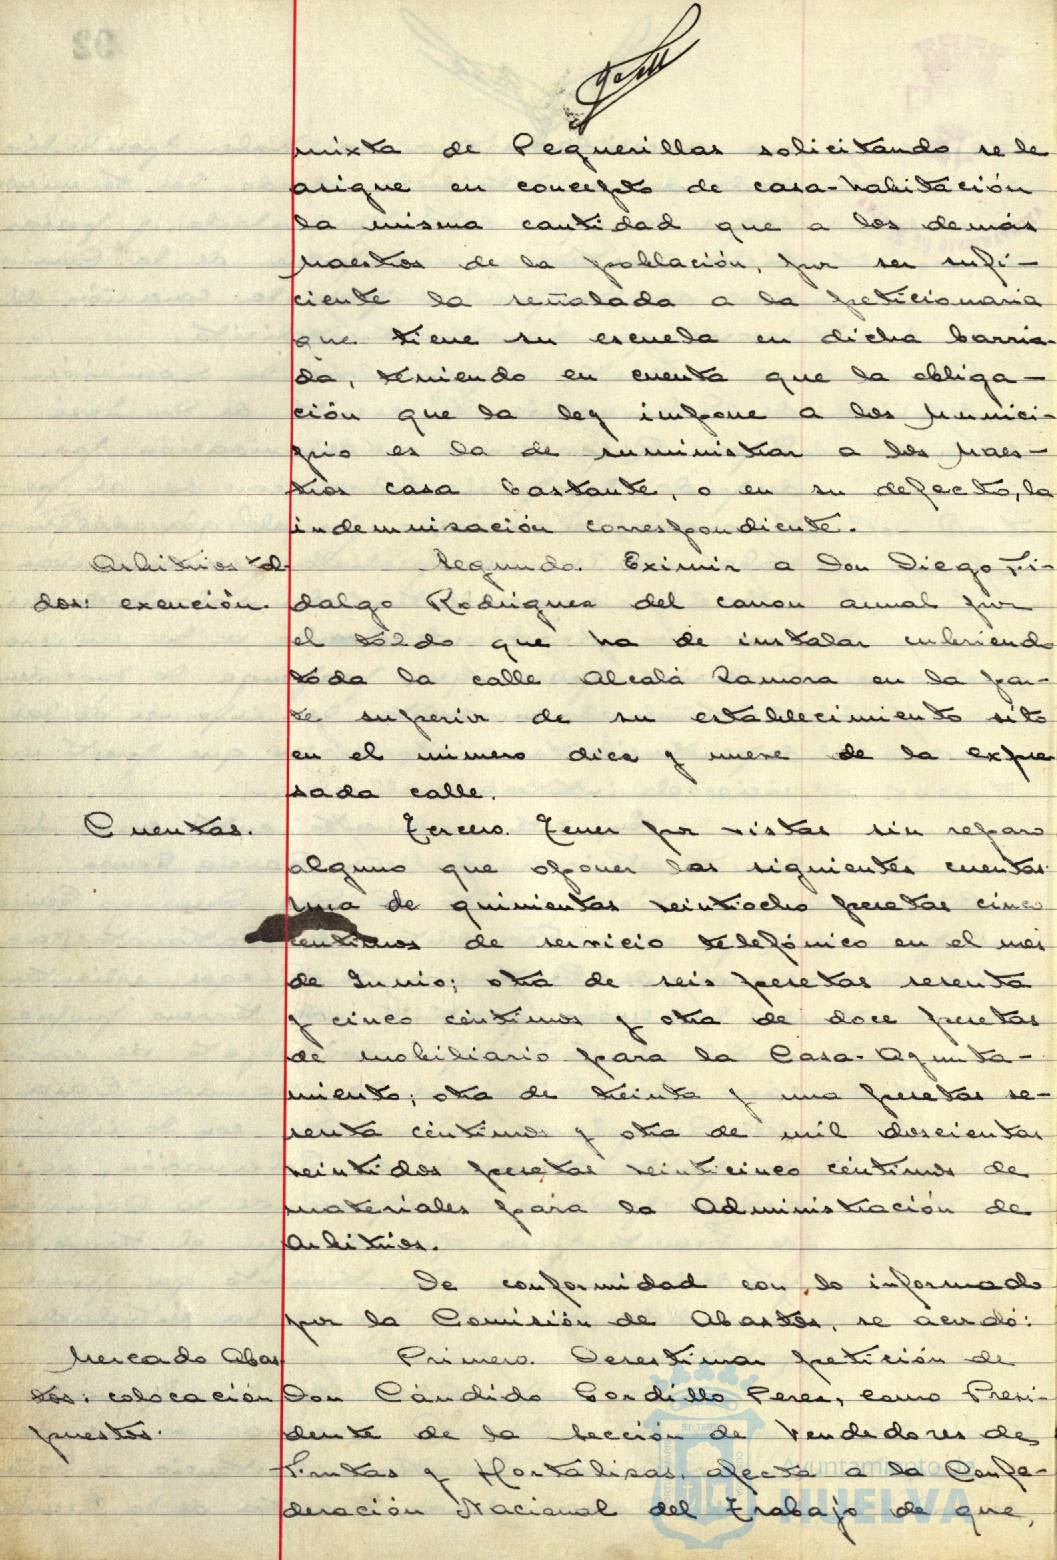 mixta de Pequerillas solicitando se le
asigne en concepto de casa-habitación
la misma cantidad que a los demás
maestros de la población, por ser sufi-
ciente la señalada a la peticionaria
que tiene su escuela en dicha barria-
da, teniendo en cuenta que la obliga-
ción que la ley impone a los munici-
pio es la de suministrar a los maes-
tros casa bastante, o en su defecto, la
indemnisación correspondiente.
Arbitrios tol
dos: exención.
Segundo. Eximir a Don Diego Fi-
dalgo Rodríguez del canon anual por
el toldo que ha de instalar cubriendo
toda la calle Alcalá Zamora en la par-
te superior de su establecimiento sito
en el número diez y nueve de la expre
sada calle.
Cuentas.
Tercero. Tener por vistas sin reparo
alguno que oponer las siguientes cuentas:
una de quinientas veintiocho pesetas cinco
centimos de servicio telefónico en el mes
de Junio; otra de seis pesetas sesenta
y cinco céntimos y otra de doce pesetas
de mobiliario para la Casa-Ayunta-
miento; otra de treinta y una pesetas se-
senta céntimos y otra de mil doscientas
veintidos pesetas veinticinco céntimos de
materiales para la Administración de
Arbitrios.
De conformidad con lo informado
por la Comisión de Abastos, se acordó:
Mercado Abas
tos: colocación
puestos.
Primero. Desestimar petición de
Don Cándido Gordillo Perez, como Presi-
dente de la Sección de Vendedores de
Frutas y Hortalisas, afecta a la Confe-
deración Nacional del Trabajo de que,
Ayuntamiento de
HUELVA